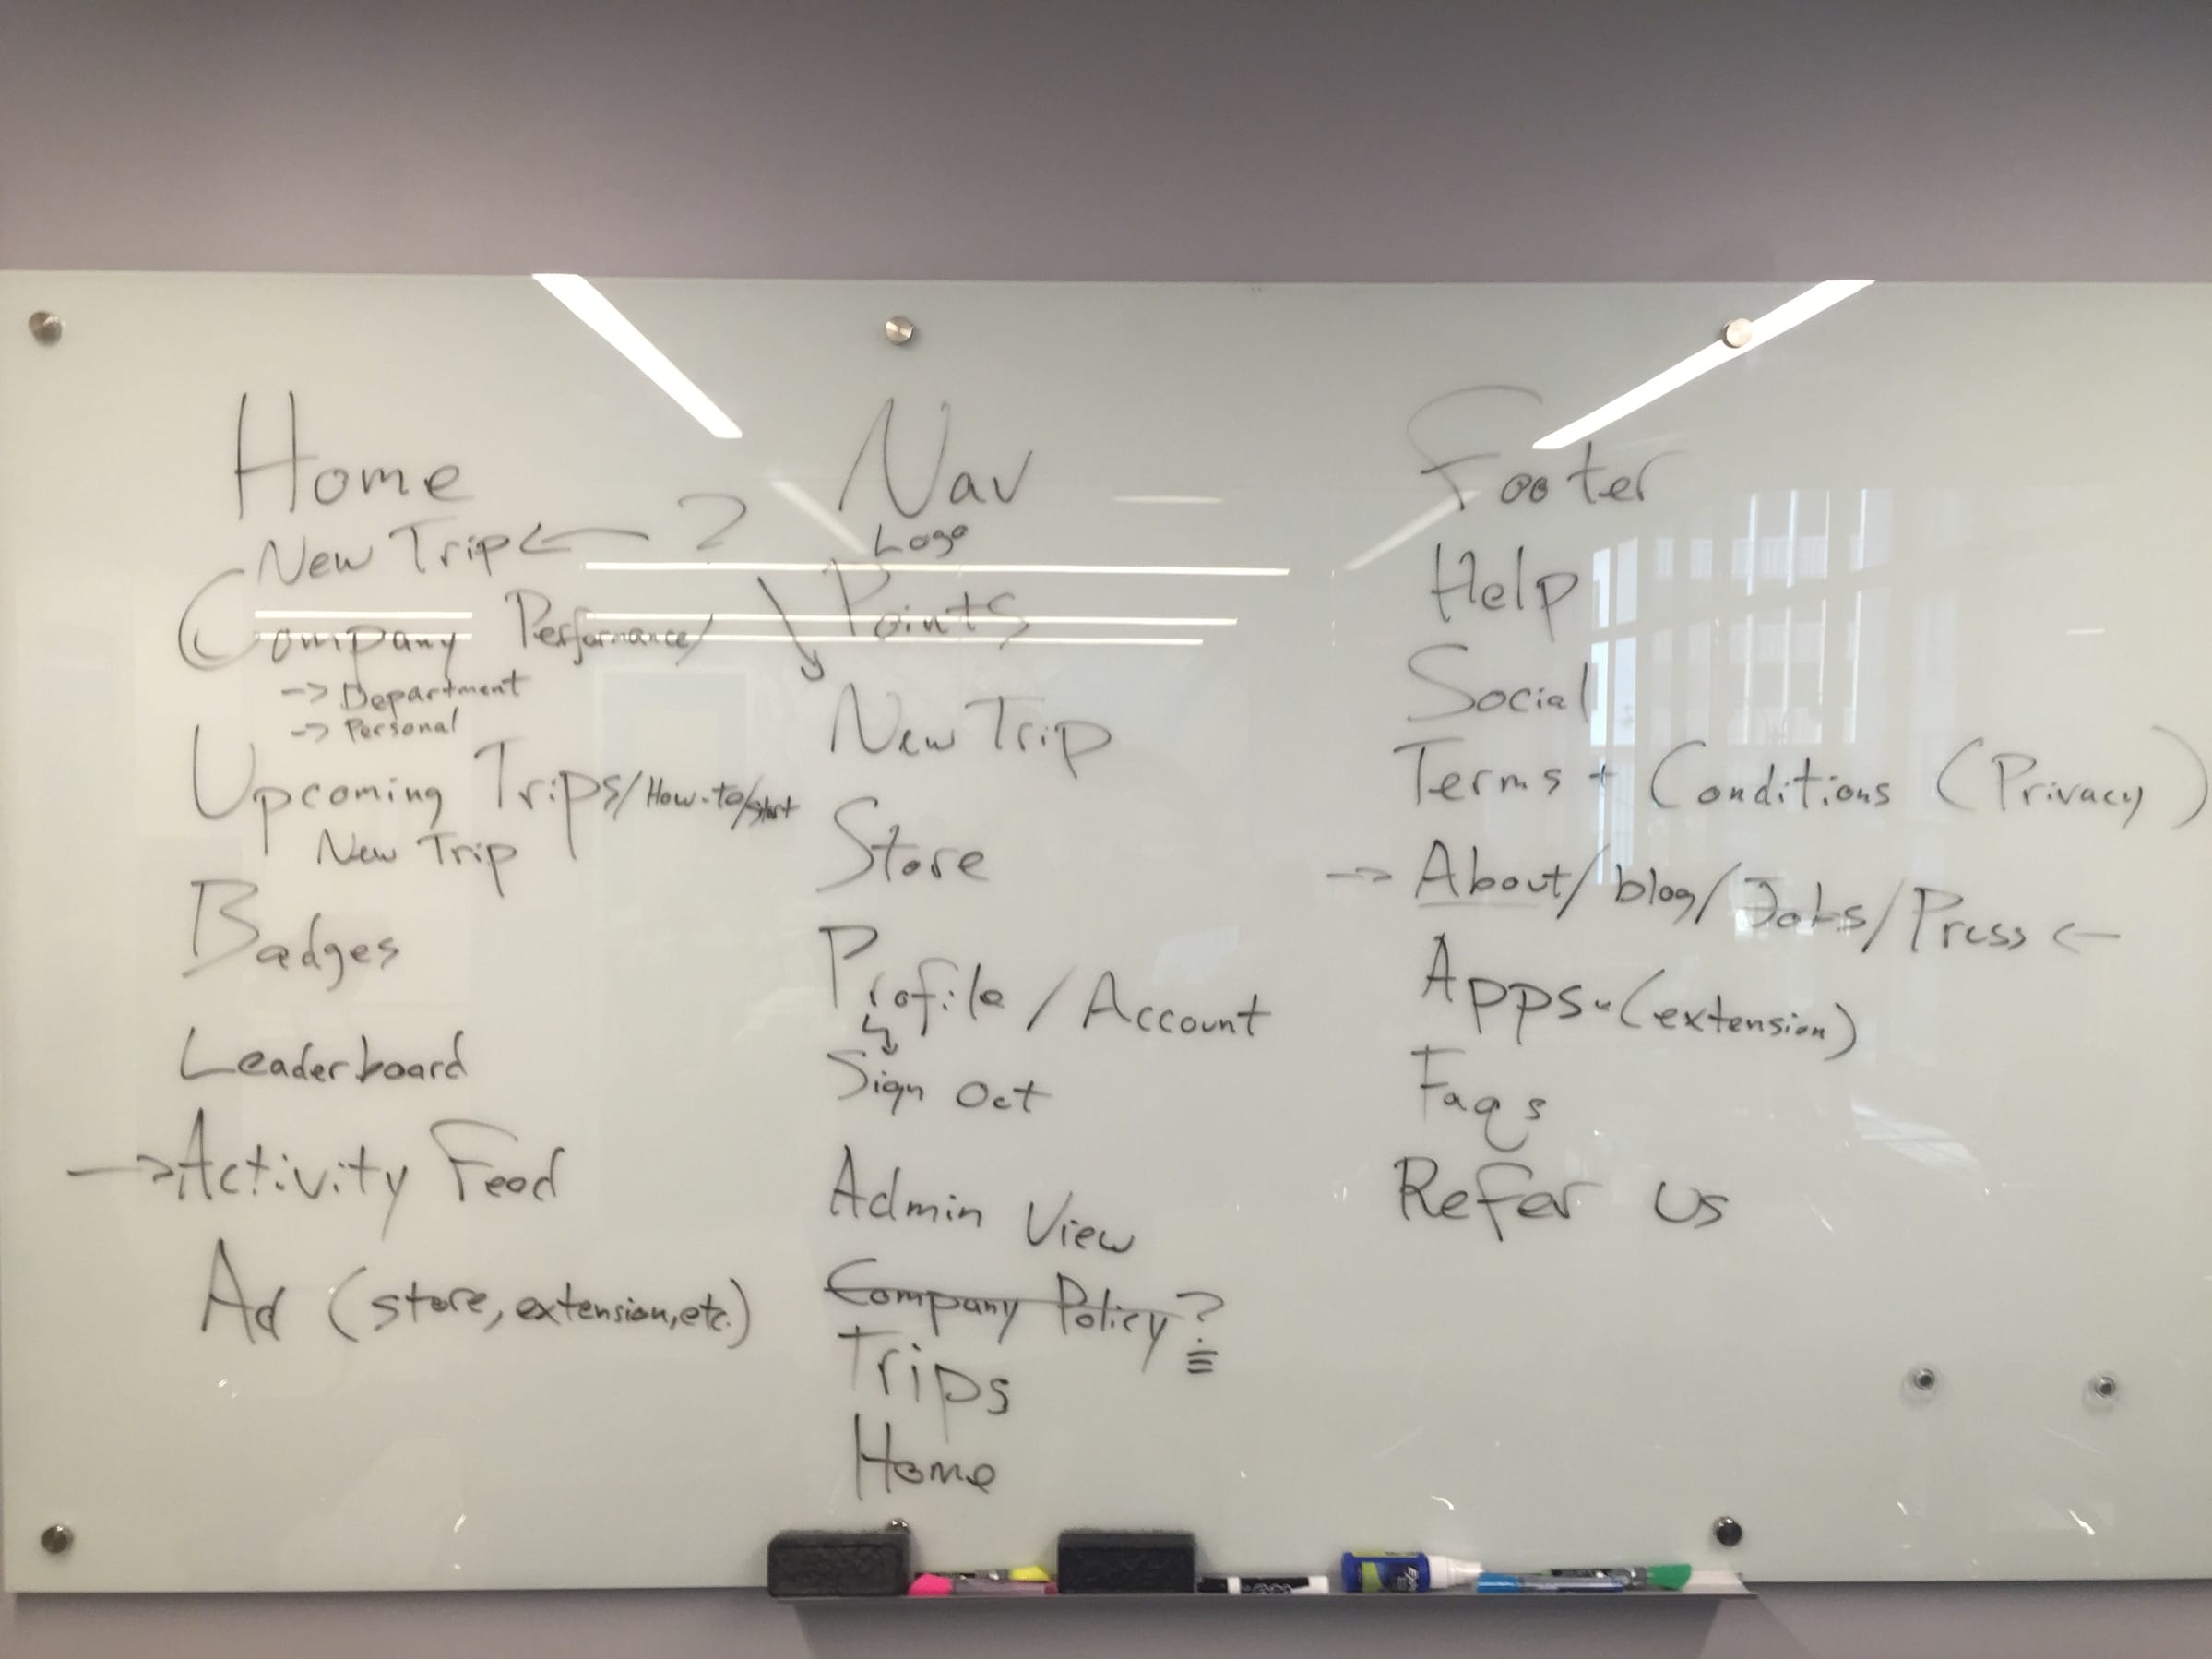 Home
New Trip ← ?
Company Performance/
-> Department
-> Personal
Upcoming Trips/How-to/start
New Trip
Badges
Leaderboard
→ Activity Feed
Ad (store, extension, etc.)
Nav
Logo
Points
New Trip
Store
Profile / Account
Sign Out
Admin View
Company Policy?
Trips
Home
Footer
Help
Social
Terms + Conditions (Privacy)
-> About/blog/Jobs/Press <-
Apps-(extension)
Faqs
Refer us